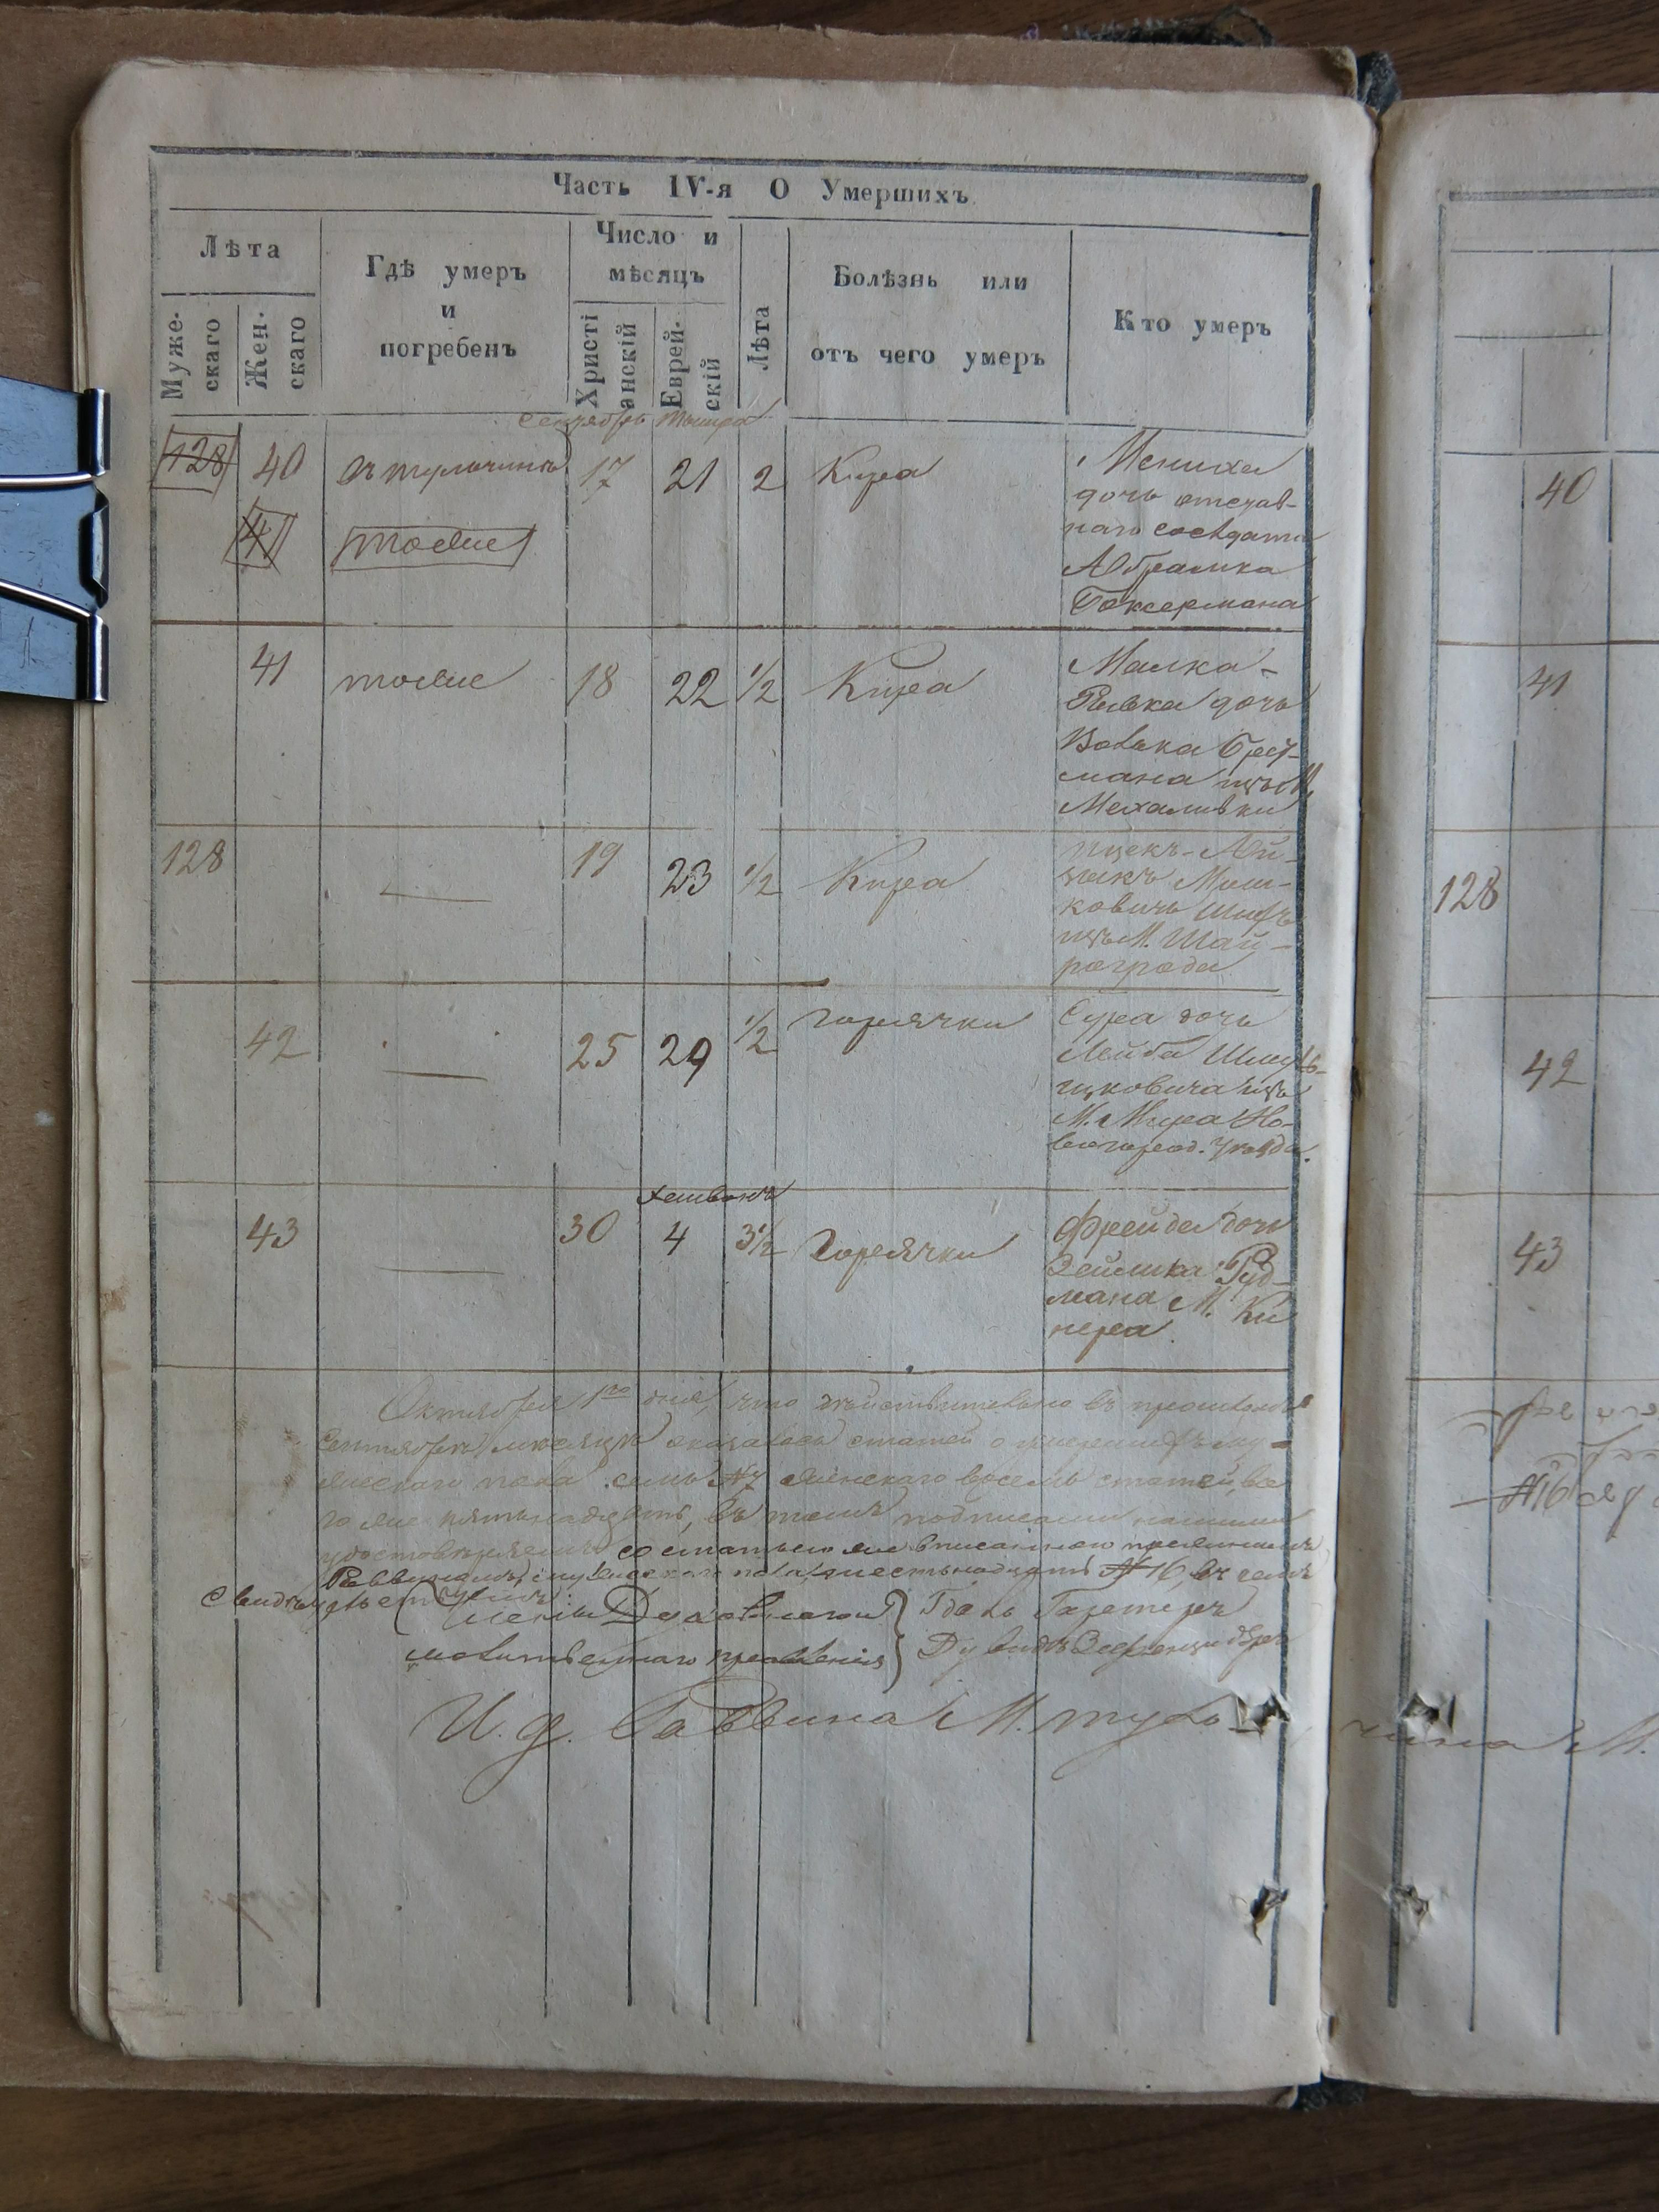 Часть IV-я О Умершихъ
Лѣта
Муже-
скаго
Жен-
скаго
Гдѣ умеръ
и
погребенъ
Число и
мѣсяцъ
Христі
анскій
Еврей-
скій
Лѣта
Болѣзнь или
отъ чего умеръ
Кто умеръ
Сентябрь Тышра
128 40 въ тульчинѣ 17 21 2 Кира
41 тоже
Мениха
дочь отстав-
наго солдата
Абрамка
Боксермана
41 тоже 18 22 1/2 Кира
Малка-
Ривка дочь
Волька
мана изъ М.
Михаливки
128 — 19 23 1/2 Кира
Ицекъ-Ай-
зикъ Мош-
ковичъ
изъ М. Шай-
рограда
42 — 25 29 1/2 горячки
Сура дочь
Лейба Шмуль-
цковича изъ
М. Мира Но-
вогород. уѣзда.
Хешванъ
43 — 30 4 3 1/2 Горячки
Фрейда дочь
Зейлика Руд-
мана М. Ки
нера
Октября 1го дня, что дѣйствительно въ прошломъ
Сентябрѣ мѣсяцѣ оказалось статей о умершихъ му-
жескаго пола семь №7 женскаго восемь статей, все
го же пятьнадцать, въ томъ подписами нашими
удостовѣряемъ со статьею же вписанною прежнимъ
Раввиномъ мужескаго пола шестьнадцать №16, въ чемъ
Свидѣтельствуемъ:
Члены Духовнаго
молитвеннаго правленія
Дувидъ
И. д. Раввина М. туль
40
41
128
42
43
№16
чина М.